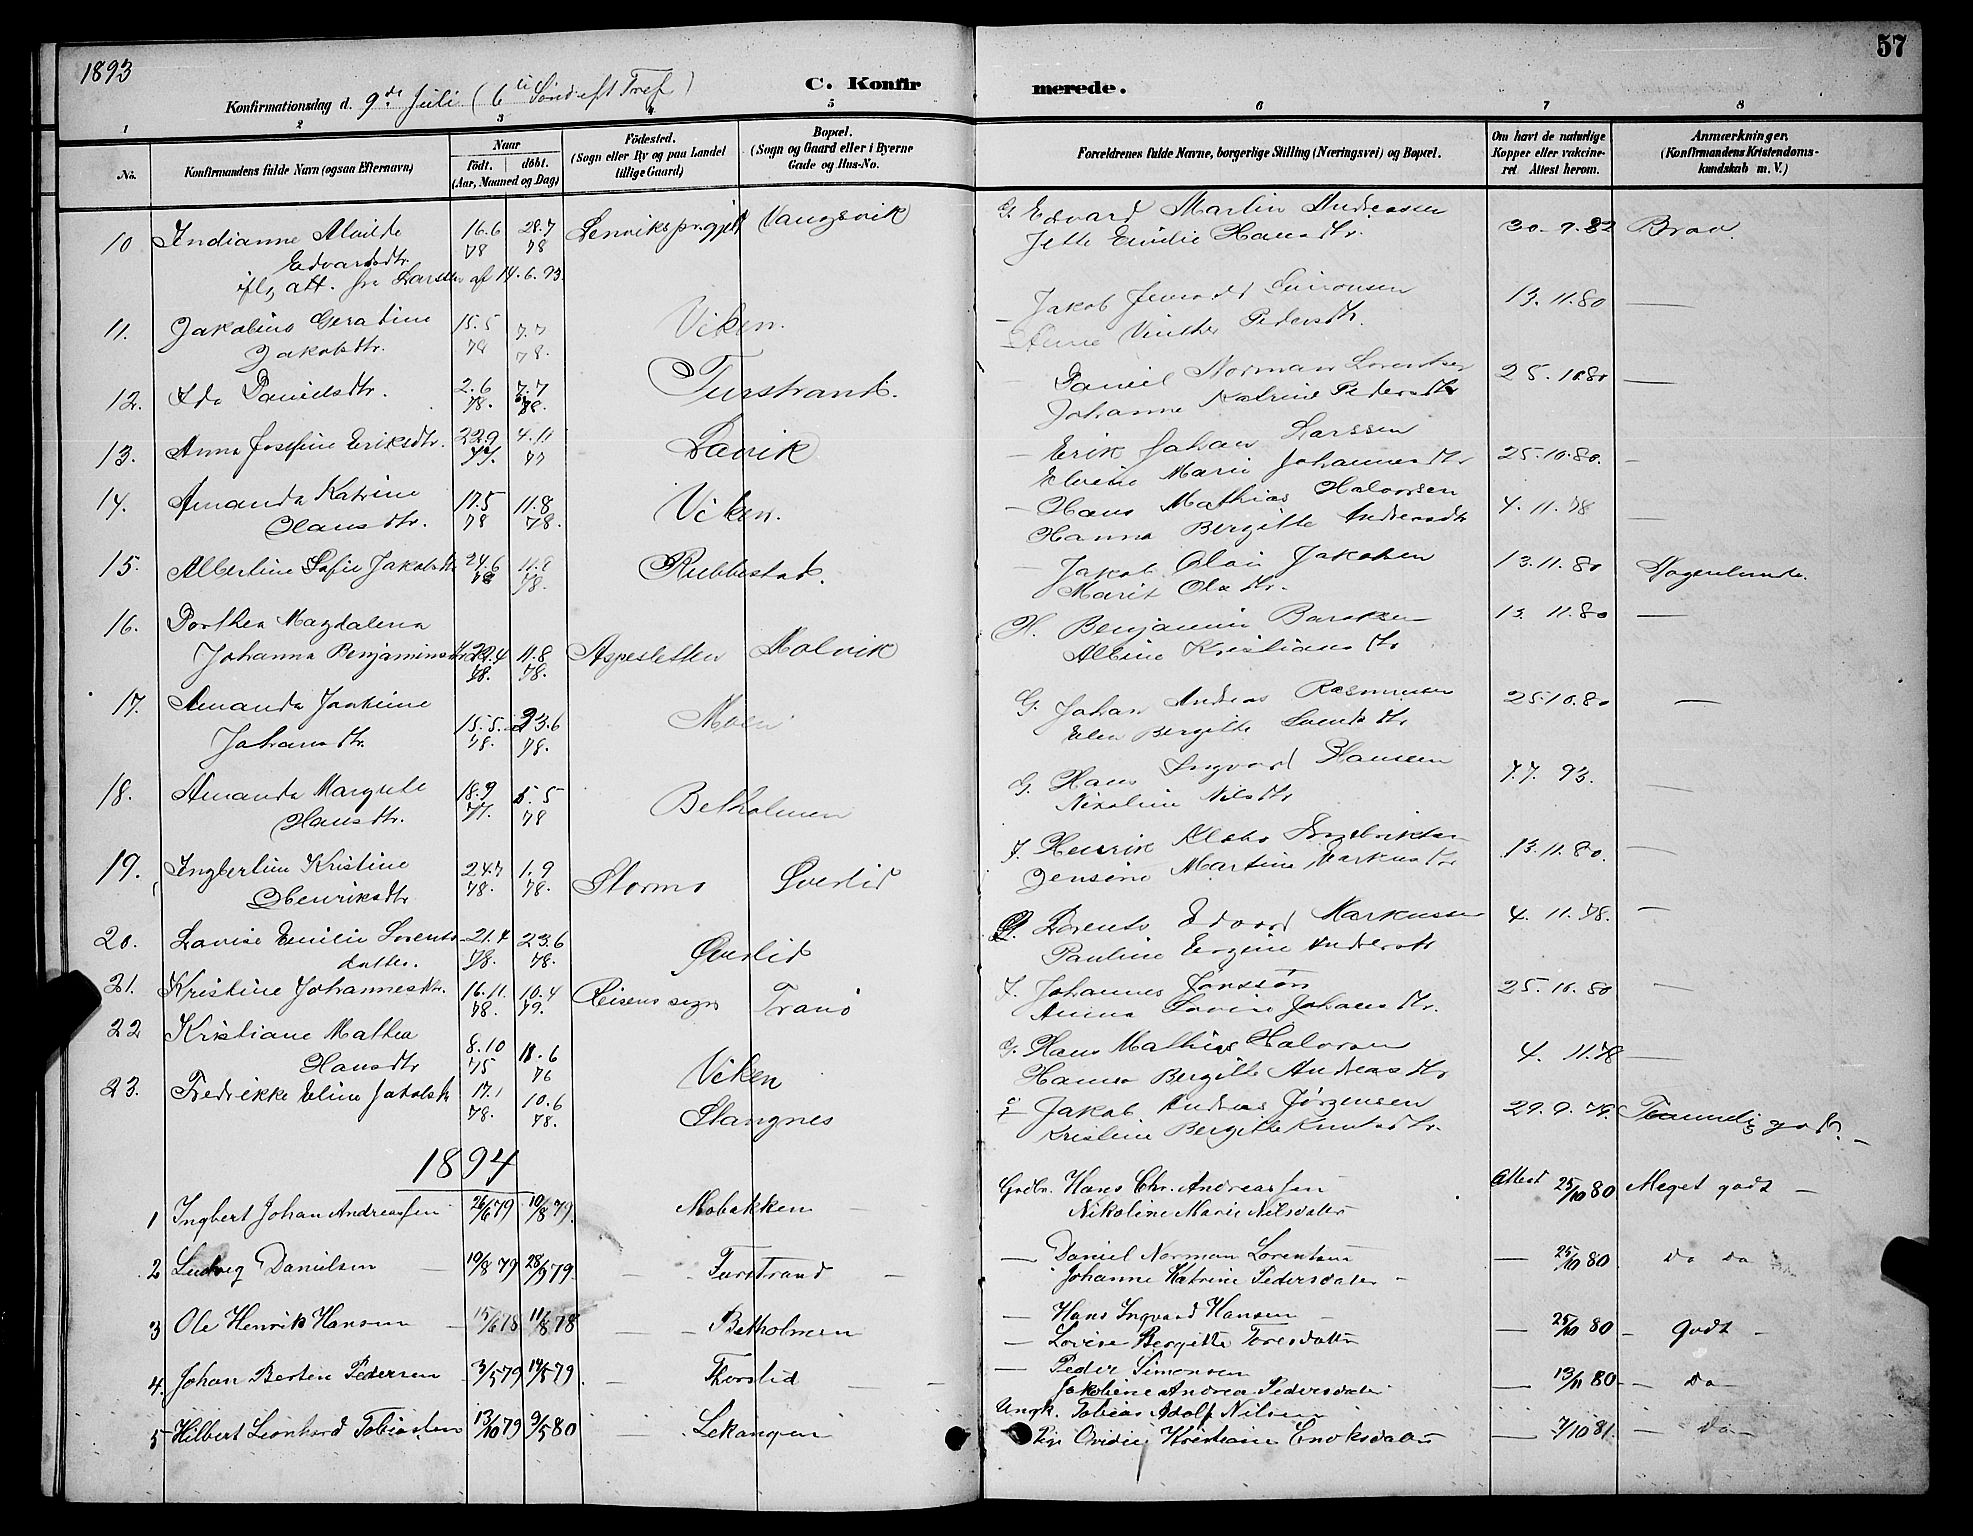 1893
57
C. Konfirmerede.
Konfirmationsdag d. 9de Juli (6te Sönd eft Tref)
1 2 3 4 5 6 7 8
No.
Konfirmandens fulde Navn (ogsaa Efternavn)
Naar
födt. döbt.
(Aar, Maaned og Dag)
Födested.
(Sogn eller By og paa Landet
tillige Gaard)
Bopæl.
(Sogn og Gaard eller i Byerne
Gade og Hus-No.
Forældrenes fulde Navne, borgerlige Stilling (Næringsvei) og Bopæl.
Om havt de naturlige
Kopper eller vakcine-
ret Attest herom.
Anmærkninger.
(Konfirmandens Kristendoms-
kundskab m. V.)
10 Indianne Alvilde 16.6 28.7 Lenviks prgjeld Vangsvik G. Edvard Martin Andreassen 30.9.82 Brav.
Edvardsdtr. 78 78 Jette Emilie Hansdtr.
ifl. att. fra Larssen af 14.6.93.
11. Jakobine Geratine 15.5 7.7 Viken. — Jakob Simonsen 13.11.80 —
Jakobsdtr. 78 78. Anne Pedersdtr.
12. Ida Danielsdtr. 2.6 7.7 Furstrand. — Daniel Norman Lorentsen 25.10.80 —
78. 78. Johanne Katrine Pedersdtr
13. Anna Josefine Eriksdtr. 22.9 4.11 Lavik — Erik Johan Larssen 25.10.80. —
77. 77 Marie Johannesdtr
14. Amanda Katrine 17.5 11.8 Viken. — Hans Mathias Halvorsen 4.11.78 —
Hansdtr. 78 78. Hanna Bergitte Andreasdtr
15. Albertine Sofie Jakobsdtr 24.6 11.8 Rubbestad. — Jakob Olai Jakobsen 13.11.80
78 78. Marit Olsdtr.
16. Dorthea Magdalena H. Benjamin 13 11.80 —
Johanna Benjaminsdtr 22.4 11.8 Aspesletten Molvik Albine Kristiansdtr
78. 78.
17. Amanda G. Johan Andreas Rasmussen 25.10.80 —
Johansdtr. 15.5. 23.6 Moen Elen Bergitte
78. 78.
18. Amanda Margrete 18.9 5.5 Betholmen G. Hans Ingvard Hansen 7.7 93. —
Hansdtr. 77. 78 Nikoline Nilsdtr
19. Ingbertine Kristine 24.7 1.9 Stormo Qverlid F. Henrik Fredriksen 13.11.80. —
Henriksdtr 78. 78. Jensine Martine Markusdtr
20. Lovise Emilie Lorents- 21.4 23.6 Qverlid Lorents Edvard Markussen 4. 11.78. —
datter. 78. 78. Pauline Andersdtr
21. Kristine Johannesdtr. 16.11. 10.4 Reisens sogn Tranö F. Johannes Jonssön 25.10.80 —
78. 79. Anna Lovise Johansdtr.
22 Kristiane Mathea 8.10 11.6 Viken G. Hans Mathias Halvorsen 4. 11.78 —
Hansdtr 75 76 Hanna Bergitte Andreasdtr
23. Fredrikke Eline Jakobsdtr 17.1 10.6 Stangnes Jakob Andreas Jörgensen 29.9.79. Temmelig godt. —
78. 78. Kristine Bergitte Knutsdtr.
1894
1 Ingbert Johan Andreassen 26/6 79 10/8 79. Mobakken — Grdbr. Hans Chr. Andreassen Attest 25/10 80 Meget godt —
Nikoline Marie Nilsdatter
2 Ludvig Danielsen — 10/8 79 28/9 79. — Furstrand — — Daniel Norman Lorentsen — 25/10 80 Do Do
Johanne Katrine Pedersdatter —
3 Ole Henrik Hansen — 15/6 78 11/8 78 — — Betholmen — Hans Ingvard Hansen — 25/10 80 — Godt —
— Lovise Bergitte Toresdatter
4. Johan Berten Pedersen 3/5 79 14/5 79. — Thorslid — — — Peder Simonsen — 13/11 80 — Do —
Jakobine Andrea Pedersdatter
5 Hilbert Leonhard Tobiassen 13/10 79 9/5 80 — Lekangen Ungk. Tobias Adolf Nilsen — 7/10 81. — Do —
Pige Ovidie Kristiane Enoksdatter